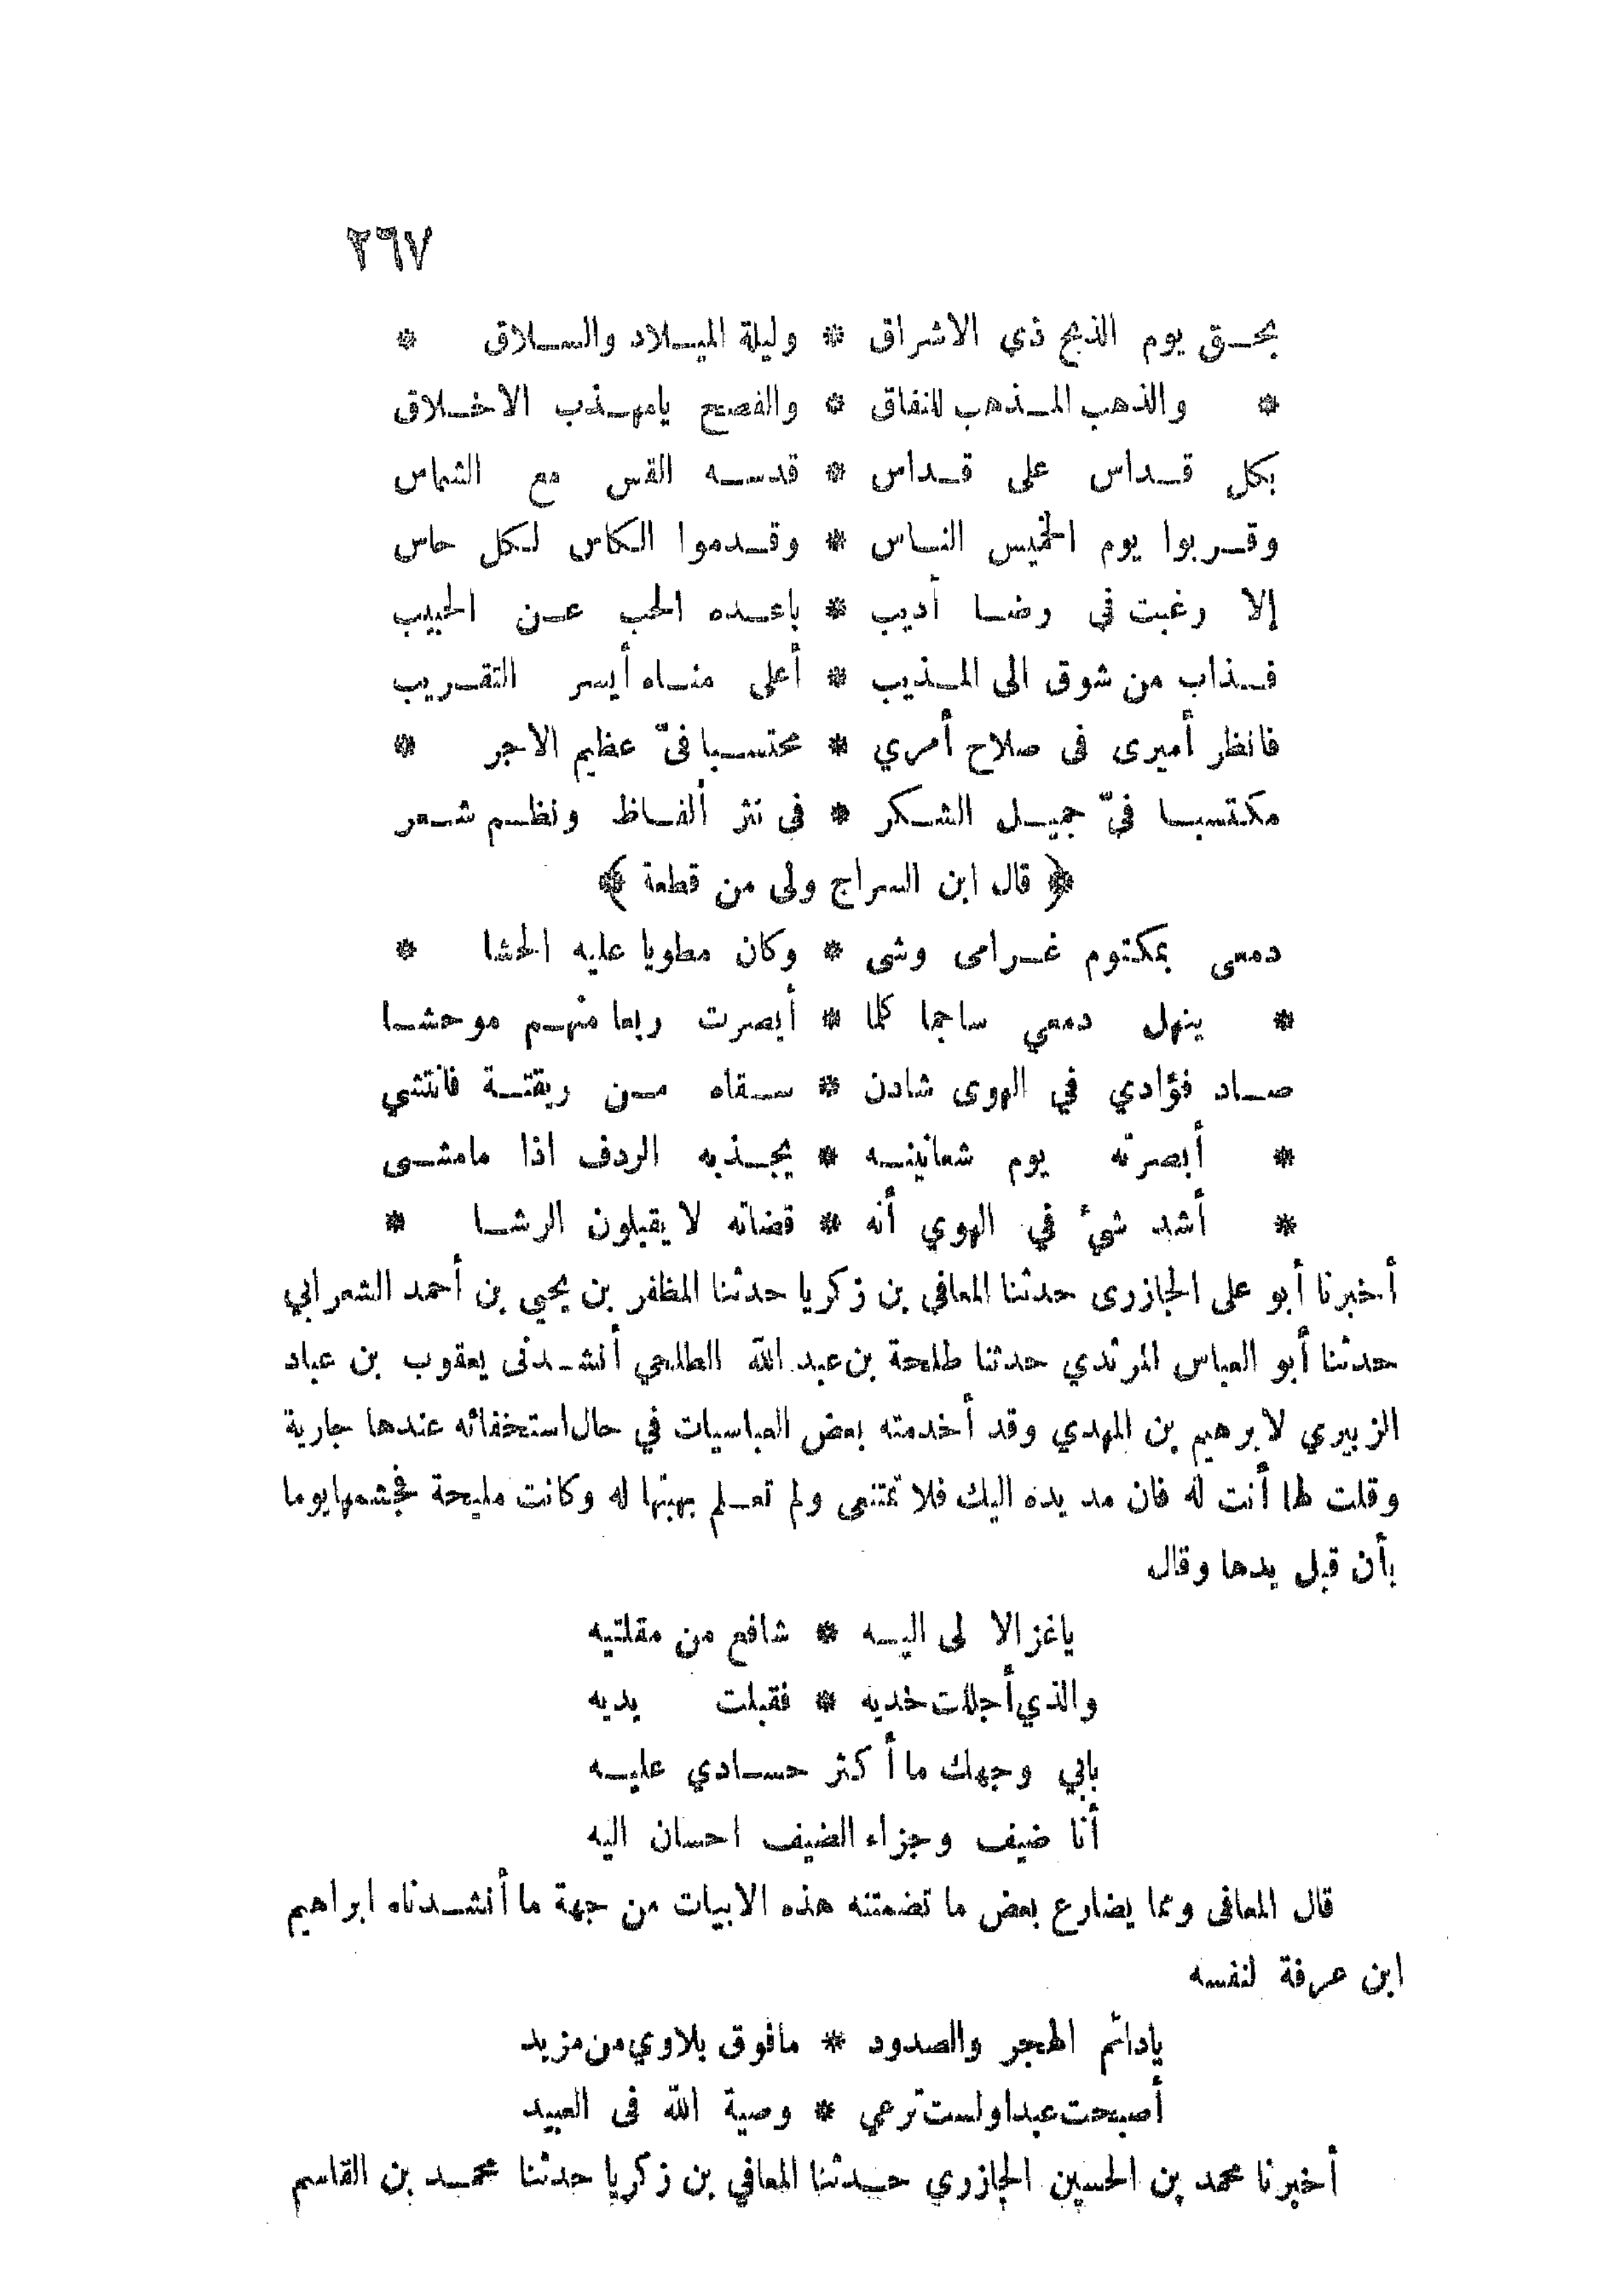 ٢٦٧
بحـق يوم الذبح ذي الاشراق * وليلة الميـلاد والسـلاق *
* والذهب المـذهب للنفاق * والفصح يامهـذب الاخـلاق
بكل قـداس على قـداس * قدسـه القس مع الشماس
وقـربوا يوم الخميس النـاس * وقـدموا الكاس لـكل حاس
إلا رغبت فى رضـا أديب * باعـده الحب عـن الحبيب
فـذاب من شوق الى المـذيب * أعلى منـاه أيسر التقـريب
فانظر أميرى فى صلاح أمري * محتسـبا فىّ عظيم الاجر *
مكتسبـا فىّ جميـل الشـكر * فى نثر ألفـاظ ونظـم شـعر
﴿ قال ابن السراج ولى من قطعة ﴾
دمعى بمكتوم غـرامى وشى * وكان مطويا عليه الحشا *
* ينهل دمعي ساجما كلما * أبصرت ربعا منهـم موحشـا
صـاد فؤادي في الهوى شادن * سـقاه مـن ريقتـة فانتشي
* أبصرته يوم شعانينـه * يجـذبه الردف اذا مامشـى
* أشد شئ في الهوي أنه * قضاته لا يقبلون الرشـا *
أخبرنا أبو على الجازرى حدثنا المعافي بن زكريا حدثنا المظفر بن يحيي بن أحمد الشعرابي
حدثنا أبو العباس المرثدي حدثنا طلحة بن عبد الله الطلحي أنشـدنى يعقوب بن عباد
الزبيري لابرهيم بن المهدي وقد أخدمته بعض العباسيات في حال استخفائه عندها جارية
وقلت لها أنت له فان مد يده اليك فلا تمتنعى ولم تعـلم بهبتها له وكانت مليحة فجشمها يوما
بأن قبل يدها وقال
ياغزالا لى اليـه * شافع من مقلتيه
والذي أجللت خديه * فقبلت يديه
بابي وجهك ما أكثر حسـادي عليـه
أنا ضيف وجزاء الضيف احسان اليه
قال المعافى ومما يضارع بعض ما تضمنته هذه الابيات من جهة ما أنشـدناه ابراهيم
ابن عرفة لنفسه
يادائم الهجر والصدود * مافوق بلاوي من مزيد
أصبحت عبدا ولست ترعي * وصية الله فى العبيد
أخبرنا محمد بن الحسين الجازوري حـدثنا المعافي بن زكريا حدثنا محمـد بن القاسم